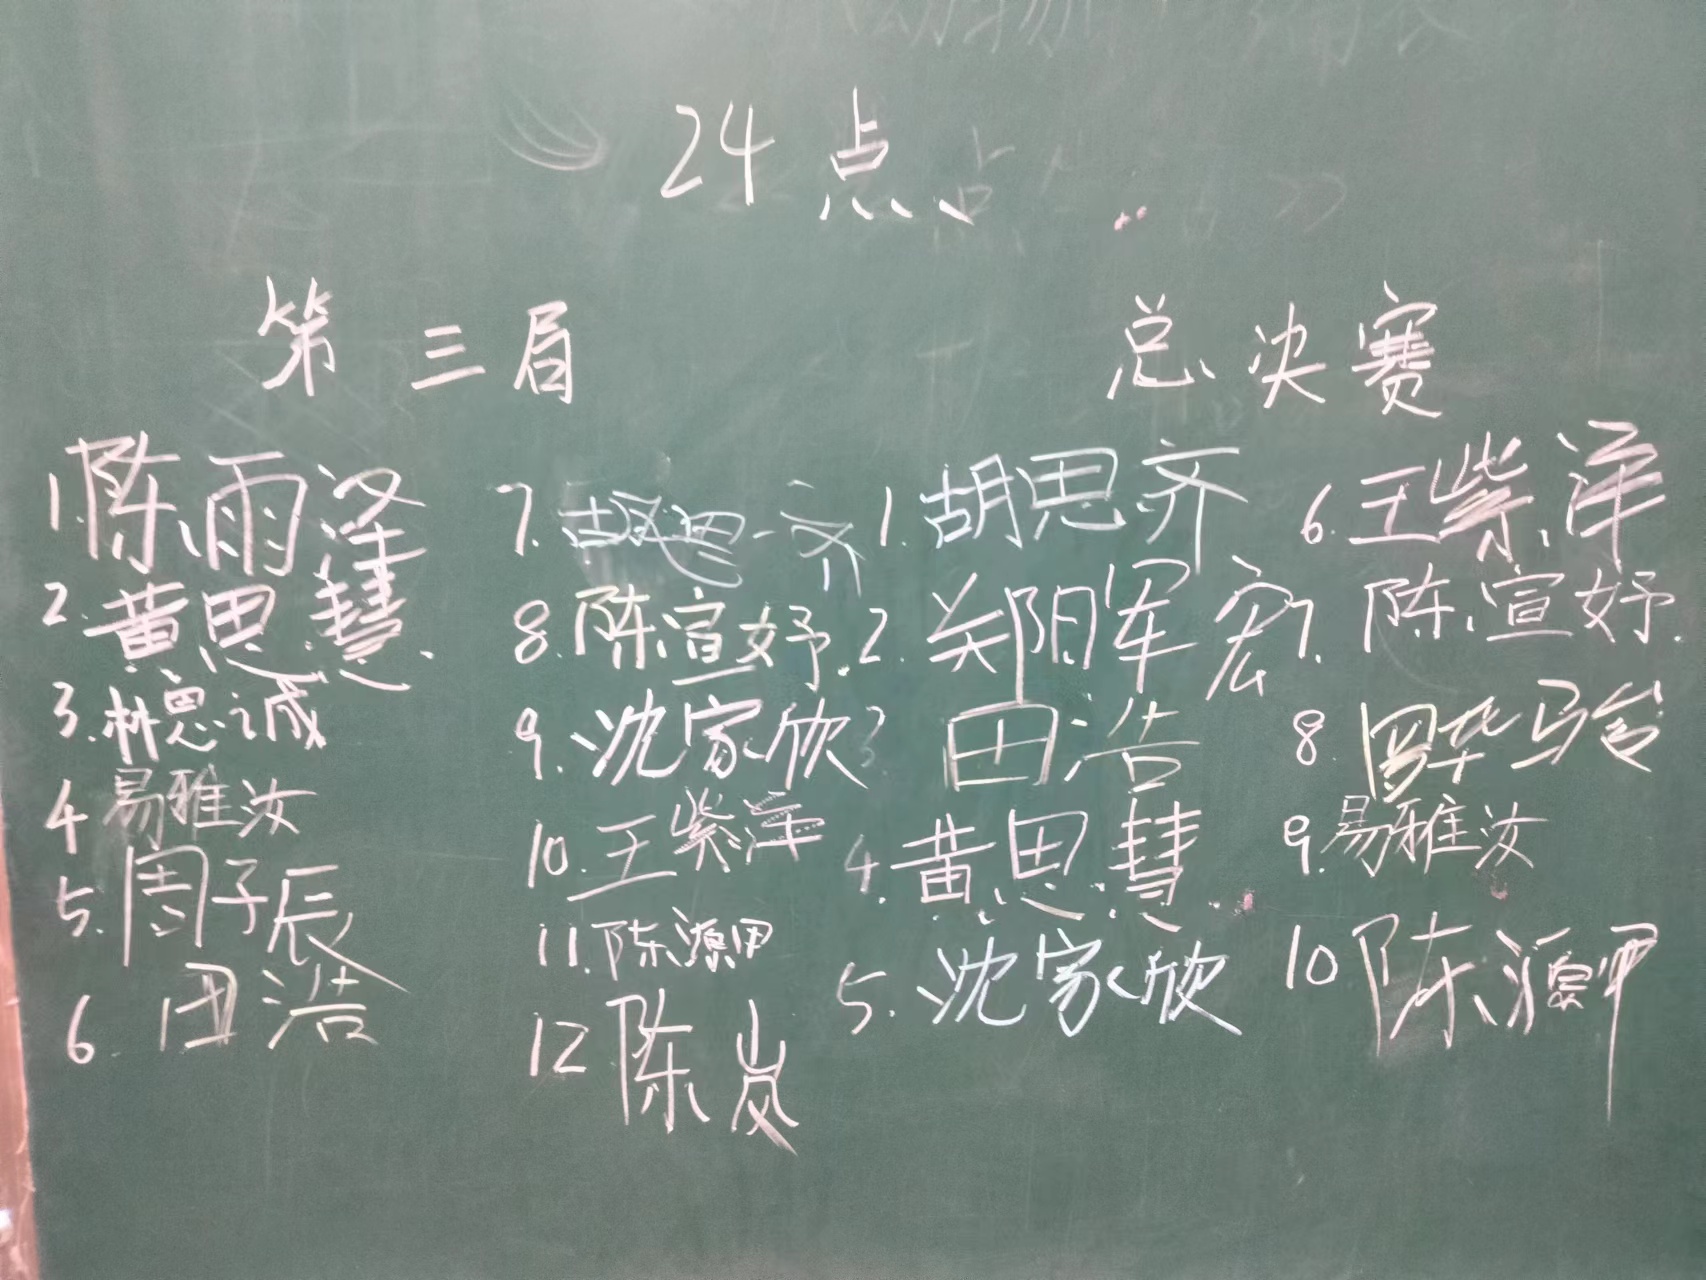 24点
第三届
总决赛
1.陈雨泽
2.黄思慧
3.林思诚
4.易雅汝
5.周子辰
6.田浩
7.胡思齐
8.陈宣妤
9.沈家欣
10.王紫洋
11.陈源甲
12陈岚
1.胡思齐
2.郑阴军宏
3.田浩
4.黄思慧
5.沈家欣
6.王紫洋
7.陈宣妤
8
9.易雅汝
10陈源甲